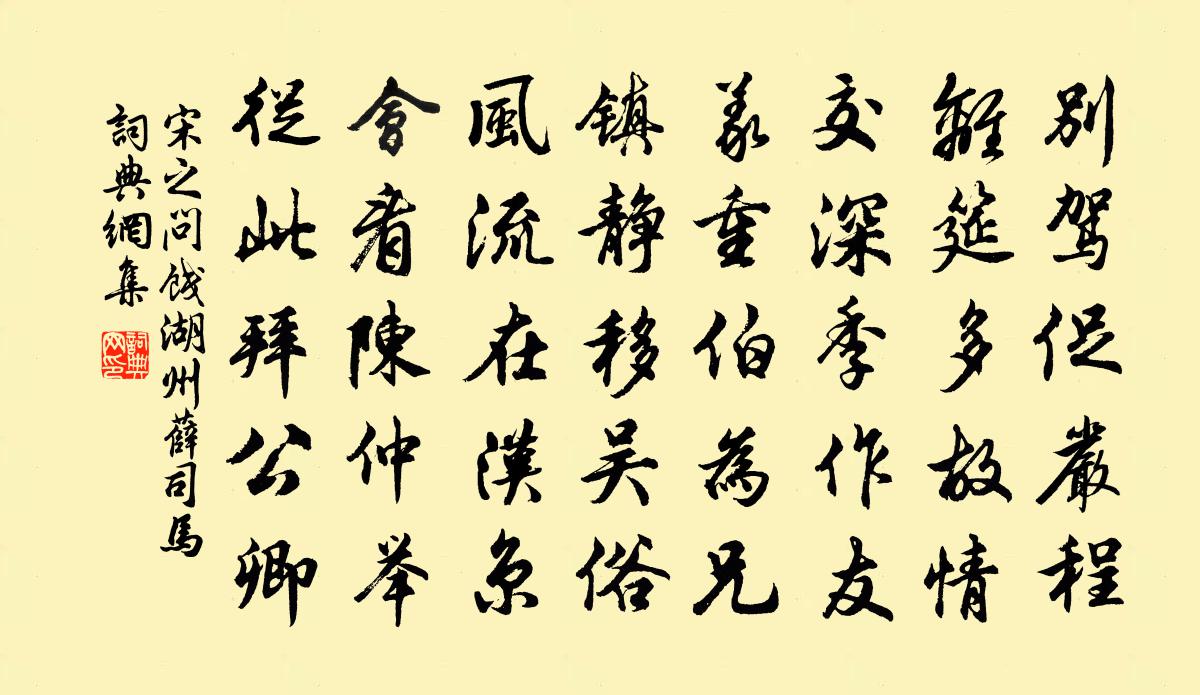 別駕促嚴程
離筵多故情
交深季作友
義重伯為兄
鎮靜移吳俗
風流在漢京
會看陳仲舉
從此拜公卿
宋之問餞湖州薛司馬
詞典網集
詞典網印